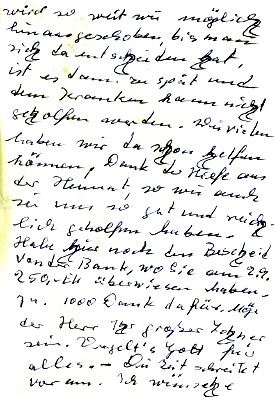 wird so weit wie möglich
hinausgeschoben, bis man
sich da entschieden hat,
ist es dann zu spät und
dem Kranken kann nicht
geholfen werden. Wie vielen
haben wir da schon helfen
können, Dank der Hilfe aus
der Heimat, so wie auch
sie uns so gut und reich-
lich geholfen haben.
Habe hier noch den Bescheid
von der Bank, wo Sie am 2.9.
250,- überwiesen haben.
1000 Dank dafür. Möge
der Herr Ihr großer Lohner
sein. Vergelt's Gott für
alles. - Die Zeit schreitet
voran. Ich wünsche